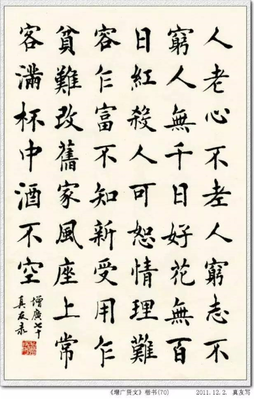 人老心不老人窮志不
窮人無千日好花無百
日紅殺人可恕情理難
容乍富不知新受用乍
貧難改舊家風座上常
客滿杯中酒不空
增廣七十
真友录
《增广贤文》楷书(70) 2011.12.2. 真友写